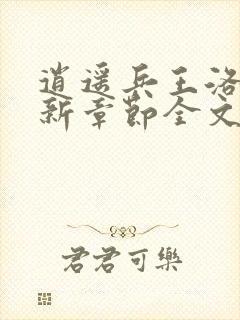 逍遥兵王洛
新章节全文
君君可樂